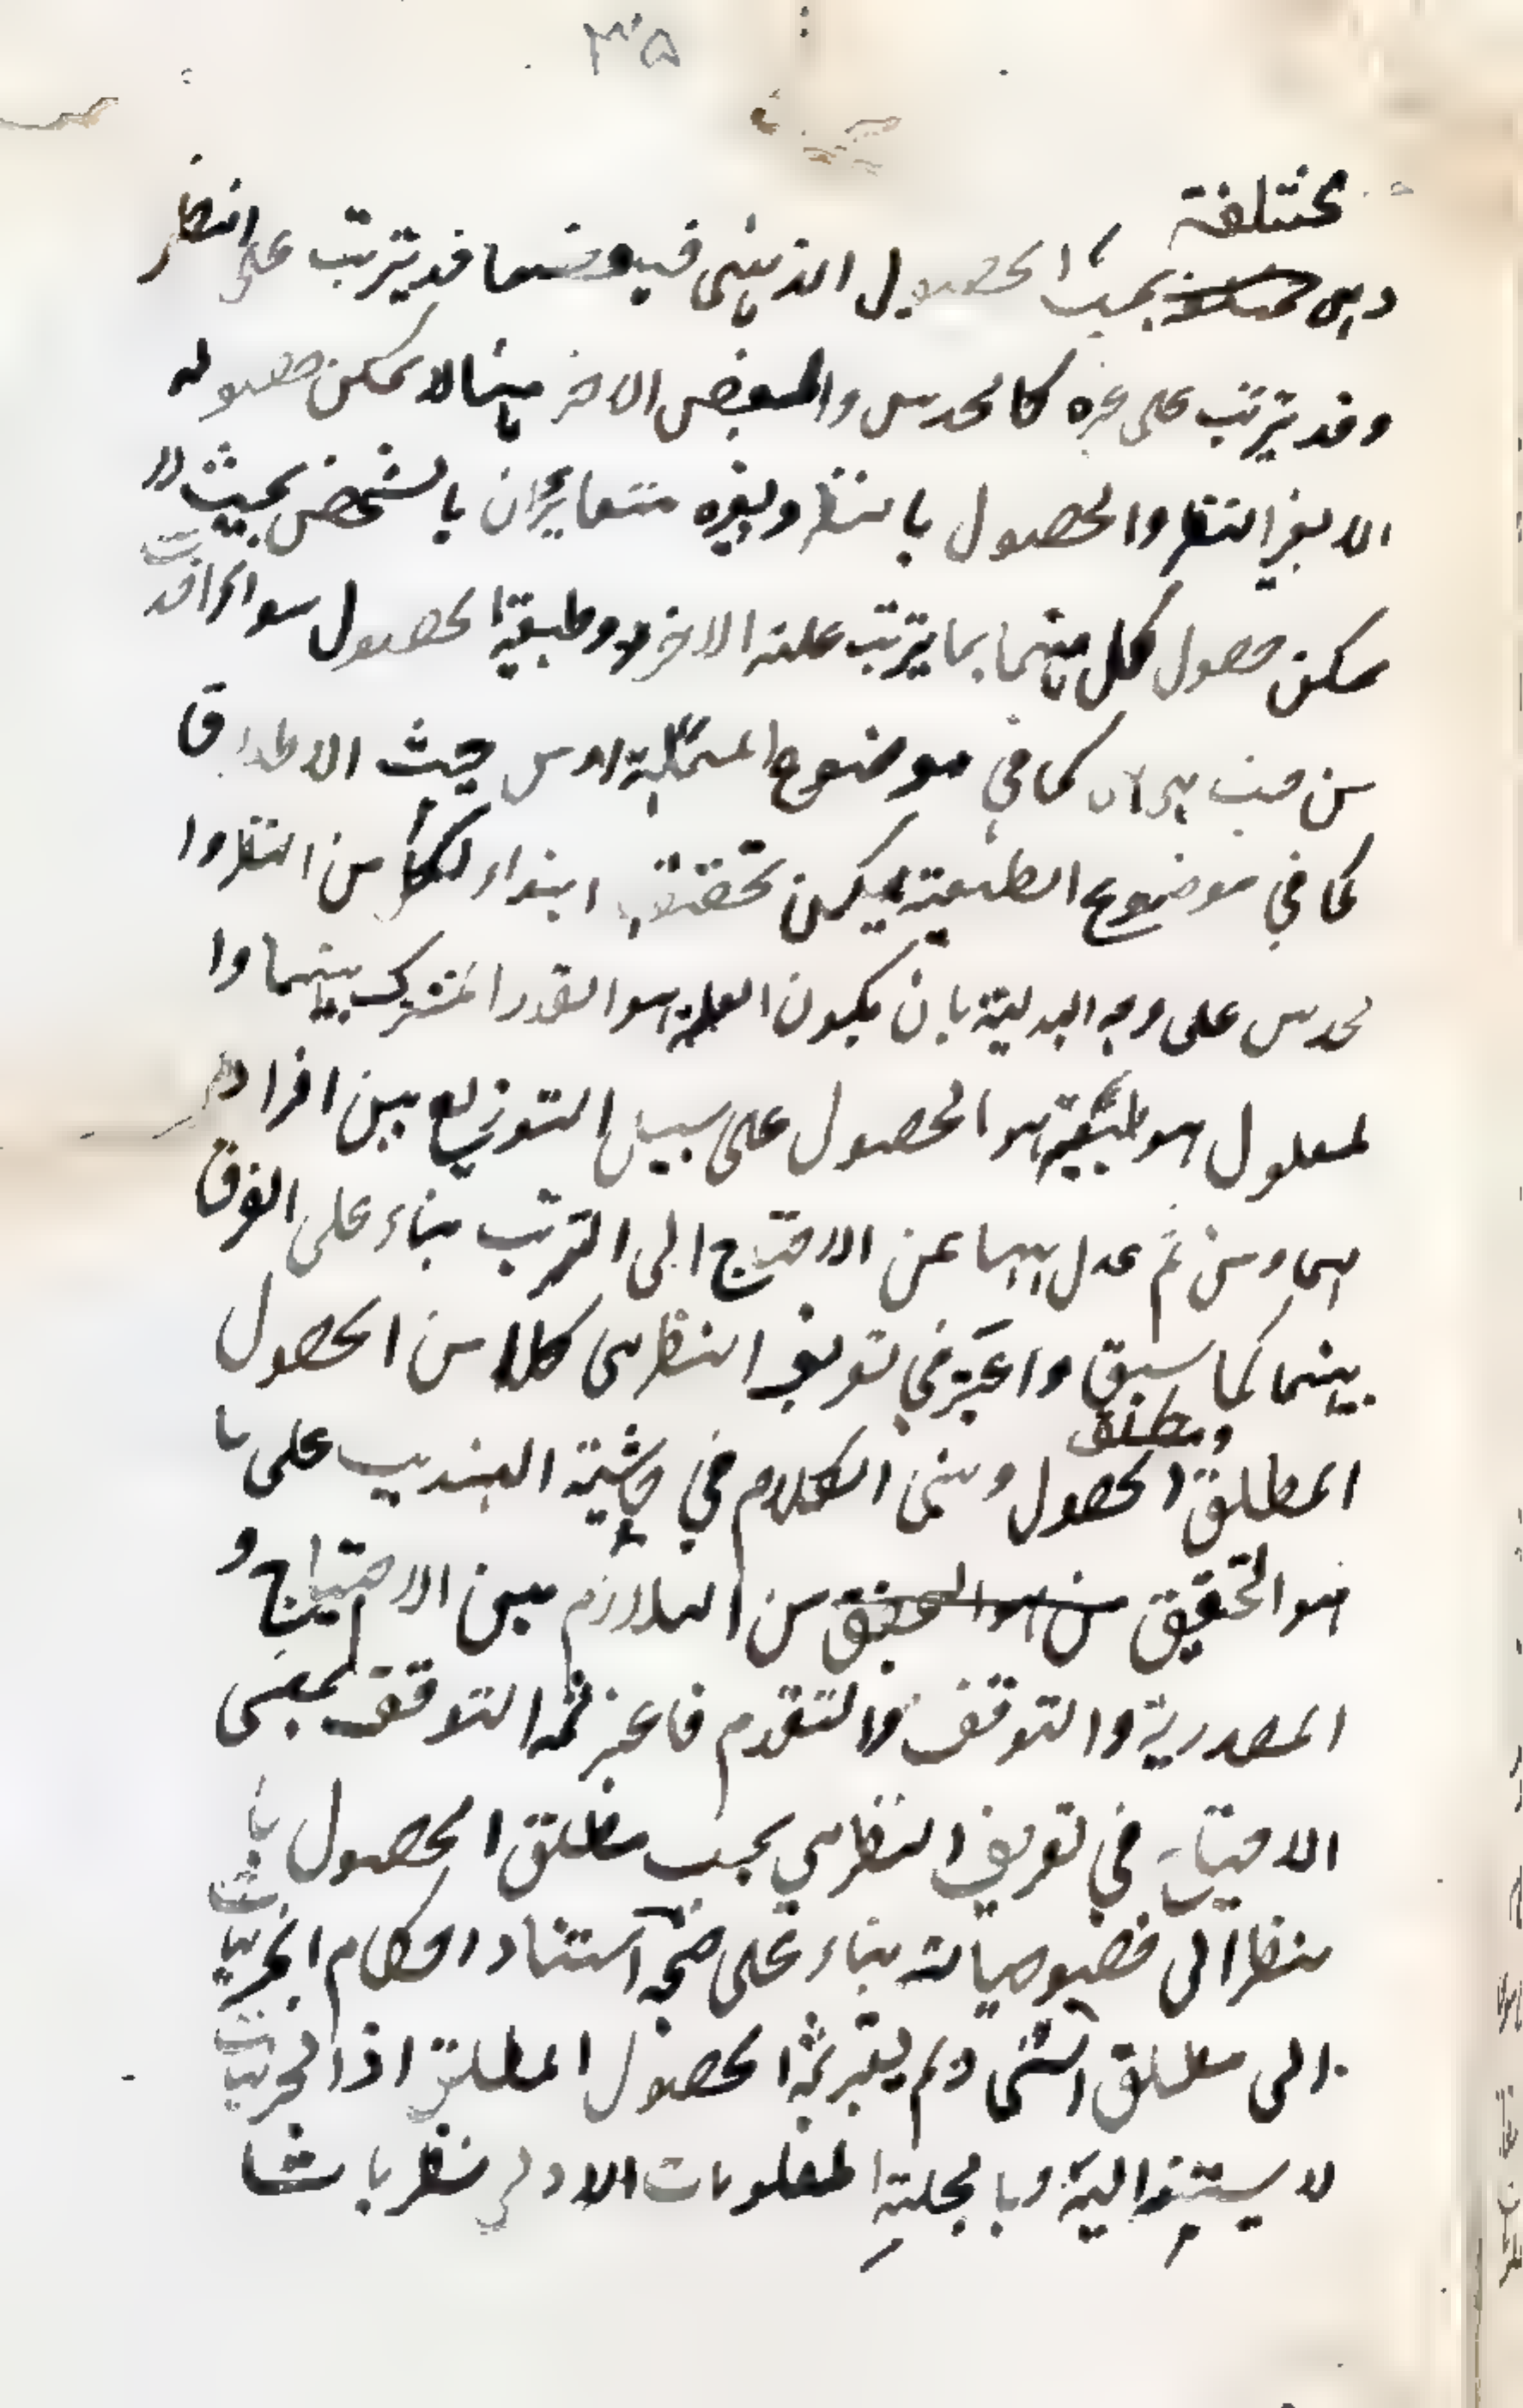 ٣٥
مختلفة
وهى بحسب الحصول الذهنى فبعضها قد يترتب على انظار
وقد يترتب على غيره كالحدس والبعض الاخر منها لا يمكن حصوله
الا بغير النظر والحصول بالنظر وبغيره متغايران بالشخص بحيث لا
يمكن حصول كل منهما بما يترتب عليه الاخر وطبيعة الحصول سواء اخذت
من حيث هى كما فى موضوع المهملة او من حيث الاطلاق
كما فى موضوع الطبيعية يمكن تحققه ابتداء لكل من النظر وا
لحدس على وجه البدلية بان يكون العلة هو القدر المشترك بينهما وا
لمعلول هو طبيعة الحصول على سبيل التوزيع بين افراد
هما ومن ثم عدل ههنا عن الاحتياج الى الترتب بناء على الفرق
بينهما كما سبق واعتبر فى تعريف النظرى كلا من الحصول
المطلق ومطلق الحصول وبنى الكلام فى حاشية التهذيب على ما
هو التحقيق من التلازم بين الاحتياج و
المصدرية والتوقف والتقدم فاعتبر ثمه التوقف بمعنى
الاحتياج فى تعريف النظرى بحسب مطلق الحصول با
لنظر الى خصوصياته بناء على صحة استناد احكام الجزئيات
الى مطلق الشئ ولم يعتبر ثمه الحصول المطلق اذ الجزئيات
لا يستند اليه وبالجملة المعلومات الاولى نظريات